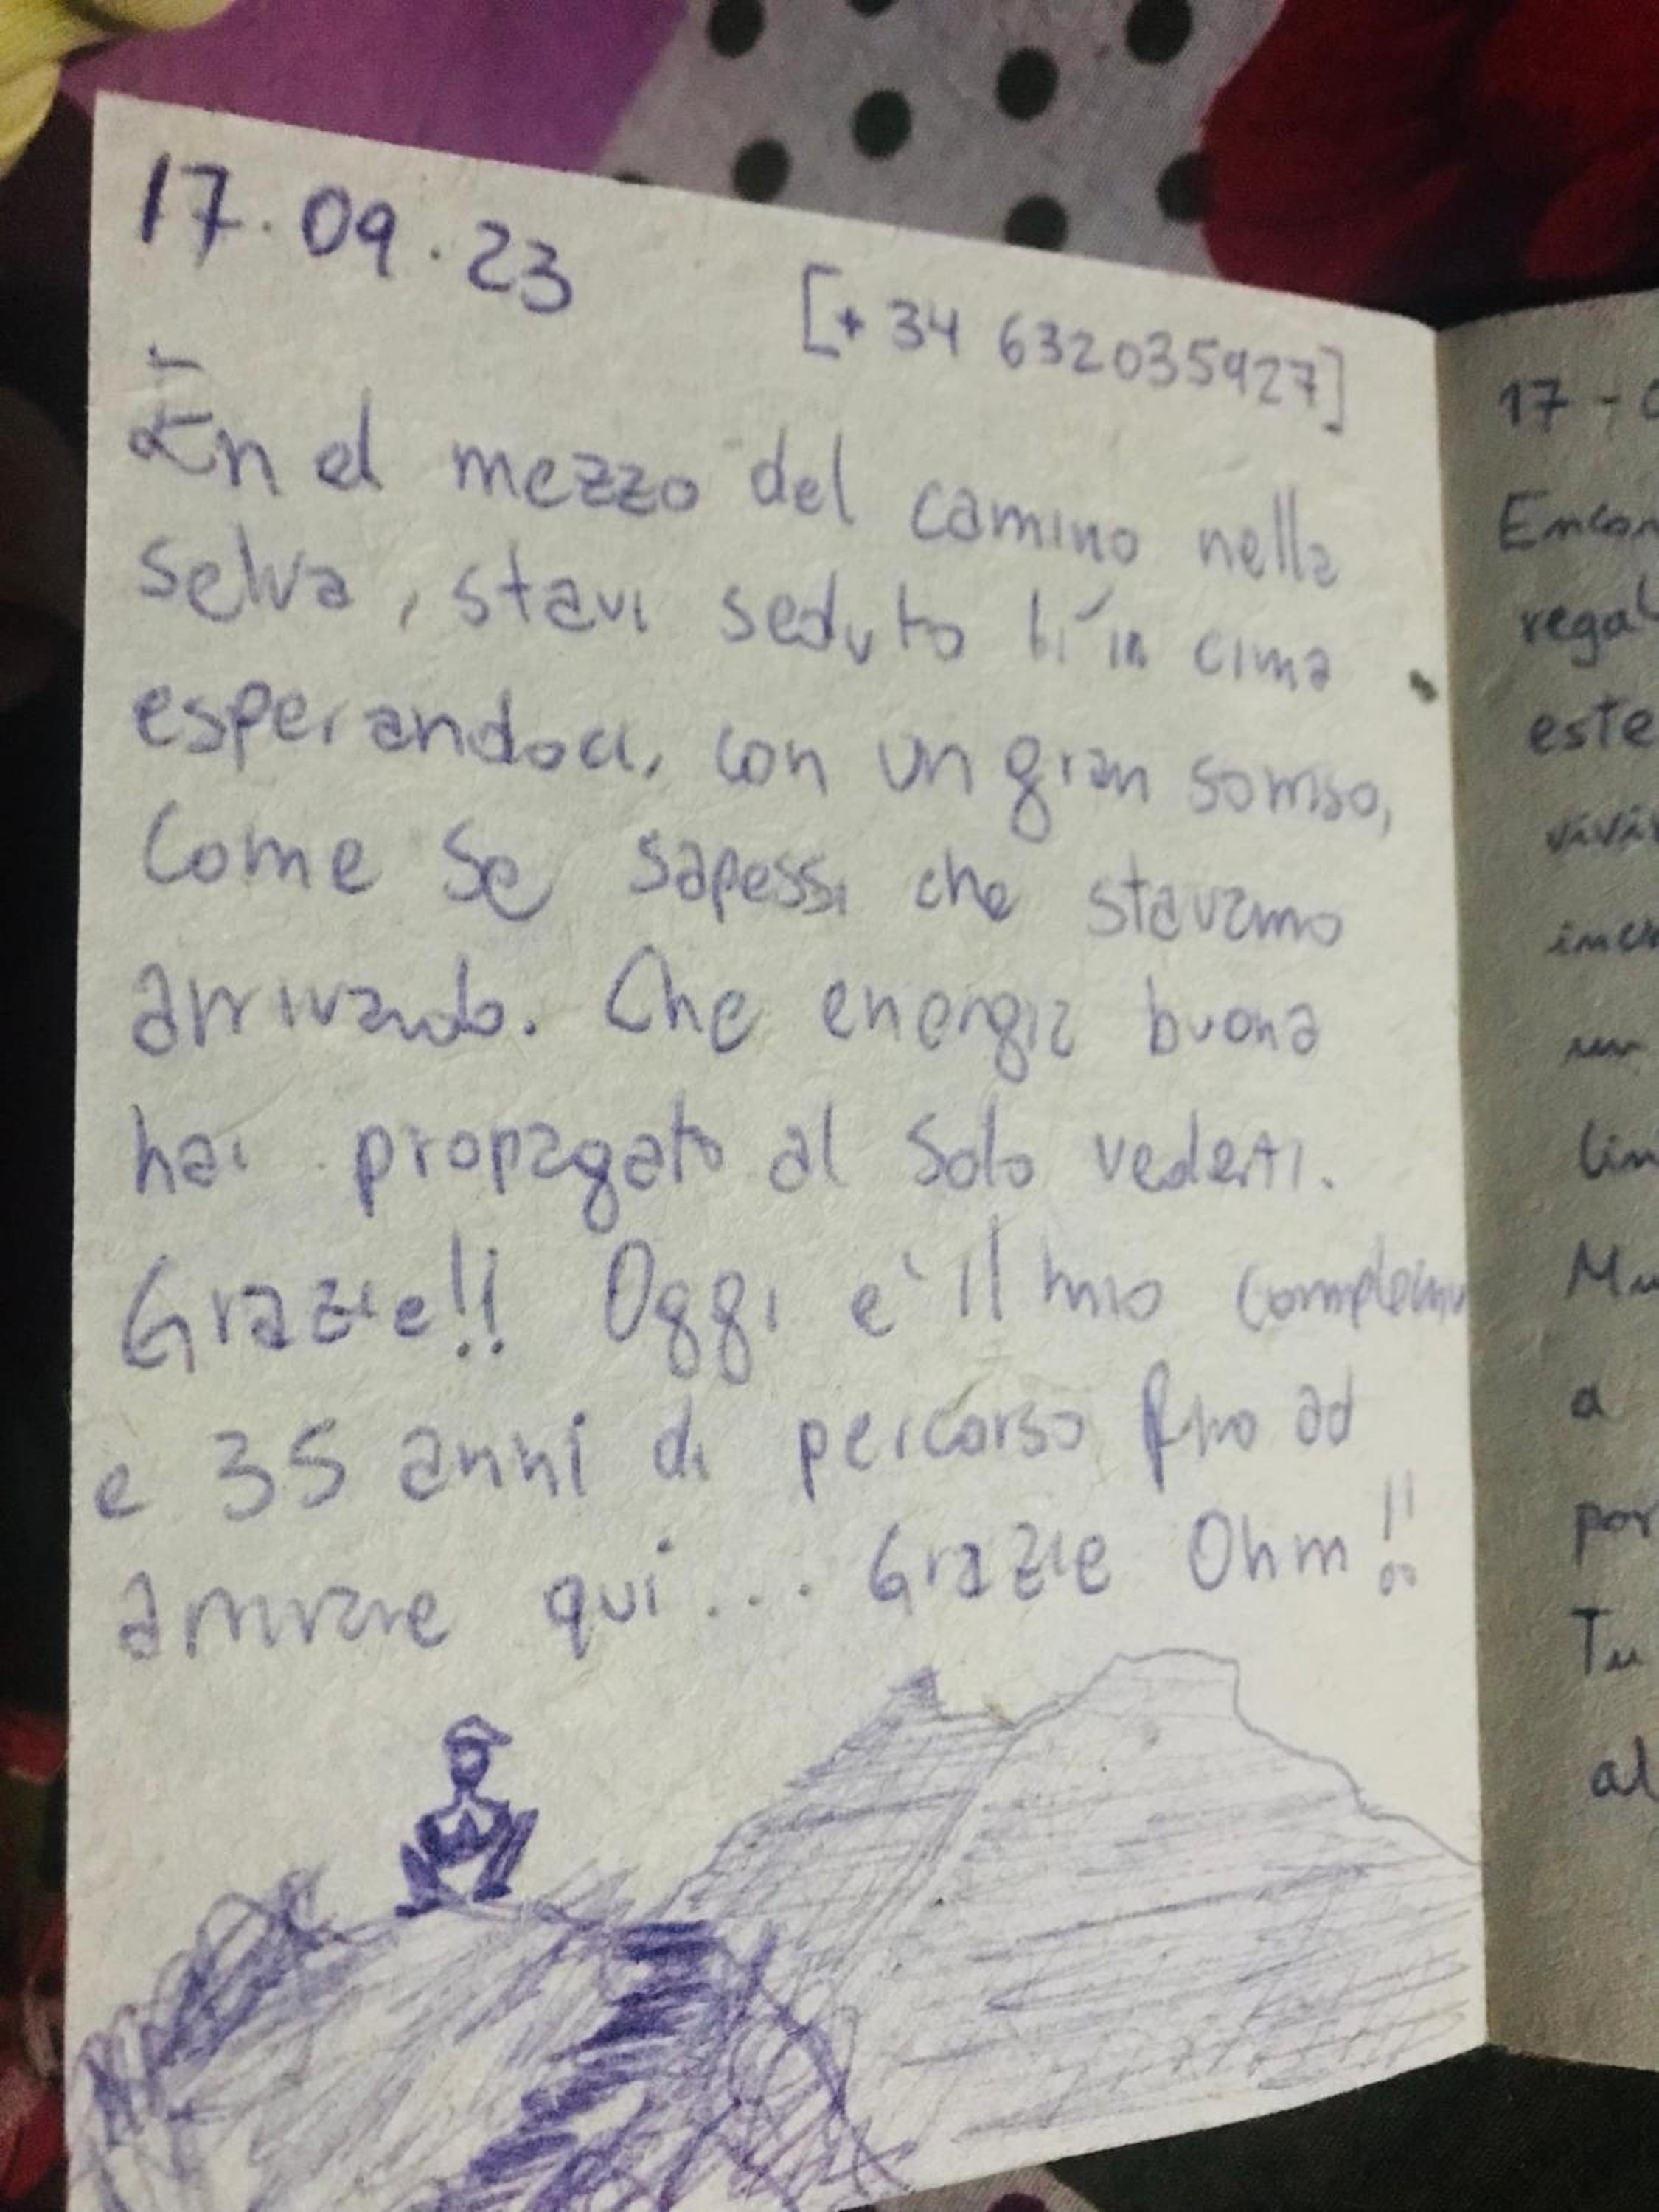 17.09.23
[+34 632035927]
En el mezzo del camino nella
selva, stavi seduto lì in cima
esperandoci, con un gran sorriso,
Come se sapessi che stavamo
arrivando. Che energia buona
hai propagato al solo vederti.
Grazie!! Oggi e' il mio
e 35 anni di percorso fino ad
arrivare qui... Grazie Ohm!!
17-0
Encon
regal
este
vivir
un
lin
Mu
a
por
Tu
al